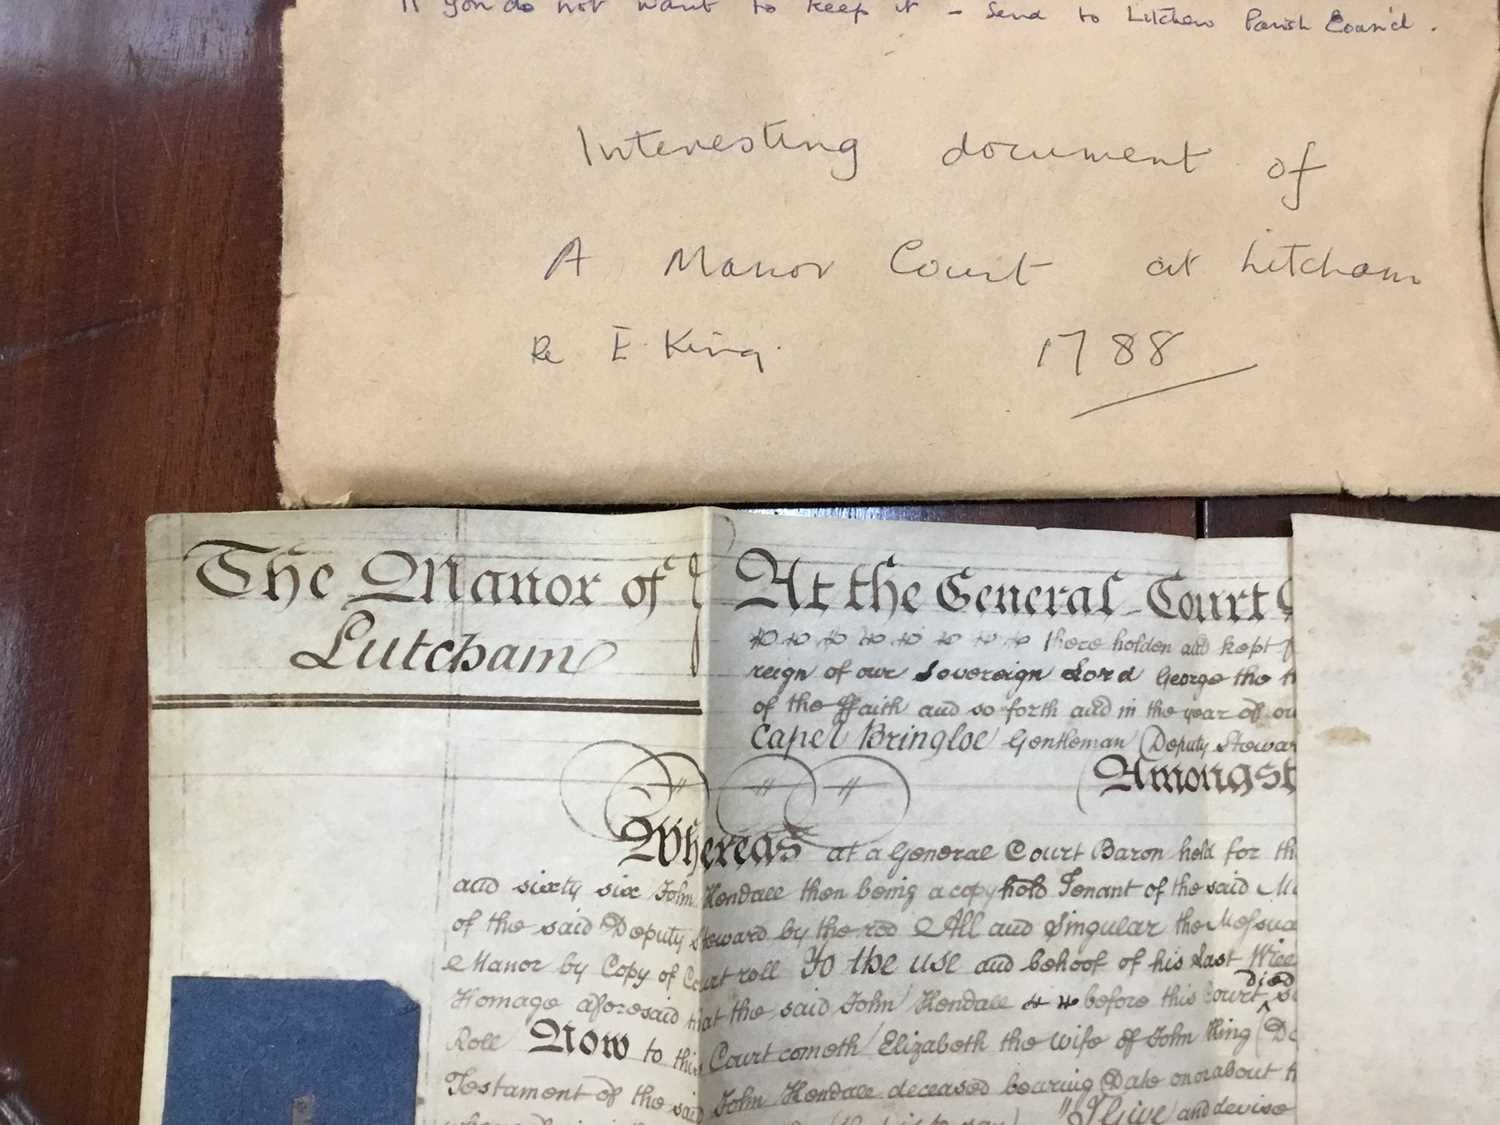 If you do not want to keep it - Send to Litcham Parish Council.
Interesting document of
A Manor Court at Litcham
Re E. King. 1788
The Manor of
Lutcham
At the General Court
there holden and kept
reign of our Sovereign Lord George the
of the ffaith and so forth and in the year of
Capel Bringloe Gentleman (Deputy Steward
Amongst
Whereas at a General Court Baron held for
and sixty six John Kendall then being a copyhold Tenant of the said
of the said Deputy Steward by the rod All and Singular the Messua
Manor by Copy of Court roll To the use and behoof of his Last
Homage aforesaid that the said John Kendall died before this Court
Roll Now to this Court cometh Elizabeth the wife of John King
Testament of the said John Kendall deceased bearing Date on or about
I Give and devise